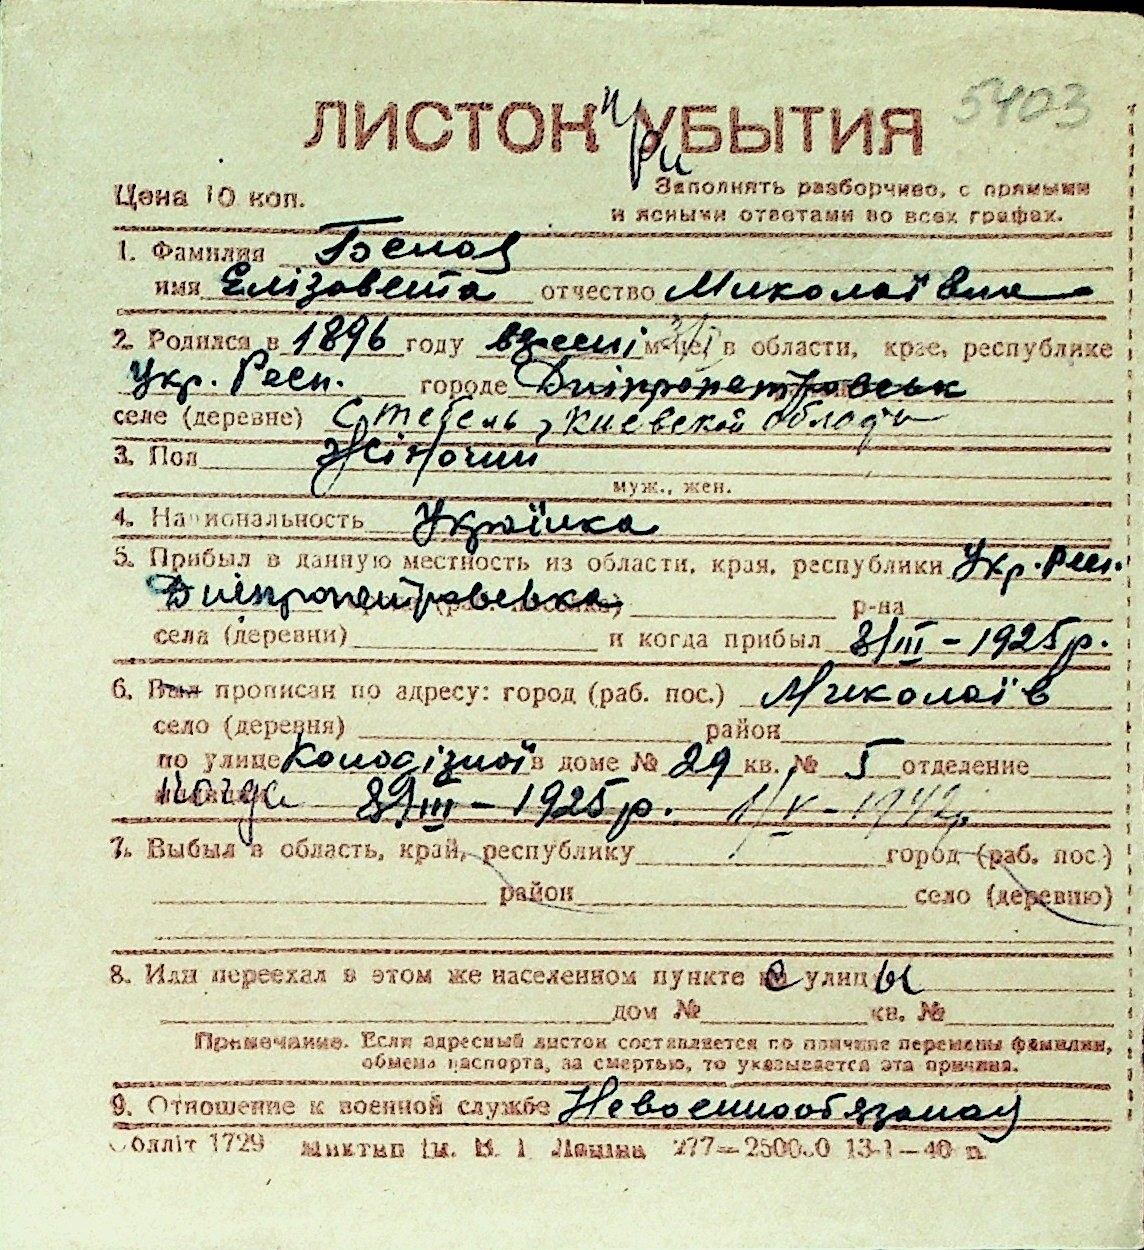 5403
ЛИСТОК при УБЫТИЯ
Цена 10 коп.
Заполнять разборчиво, с прямыми
и ясными ответами во всех графах.
1. Фамилия Белоя
имя Елізовета отчество Миколаївна
2. Родился в 1896 году взесні м-це в области, крае, республике
Укр. Респ. городе Дніпропетровськ
селе (деревне) Стебель, Киевской области
3. Пол Жіночий
муж., жен.
4. Национальность Українка
5. Прибыл в данную местность из области, края, республики Укр. Респ.
Дніпропетровська р-на
села (деревни) и когда прибыл 8/III – 1925 р.
6. Был прописан по адресу: город (раб. пос.) Миколаїв
село (деревня) район
по улице Колодізної в доме № 29 кв. № 5 отделение
когда 8/III – 1925 р. 1/V – 1942
7. Выбыл в область, край, республику город (раб. пос.)
район село (деревню)
8. Или переехал в этом же населенном пункте с улицы
дом № кв. №
Примечание. Если адресный листок составляется по причине перемены фамилии,
обмена паспорта, за смертью, то указывается эта причина.
9. Отношение к военной службе Невоеннообязаная
Облліт 1729 Миктип Ім. В. І Леніна 277—250000 13-1—40 п.